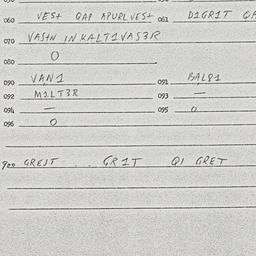 060 VES+ QAP APURLVES+ 061 D1GR1T
070 VAS+N INKALT1VAS3R
080 O
090 VAN1 091 BAL81
092 M1LT3R 093 —
094 — 095 O
096 O
GREST . . GR1T Q1 GRET